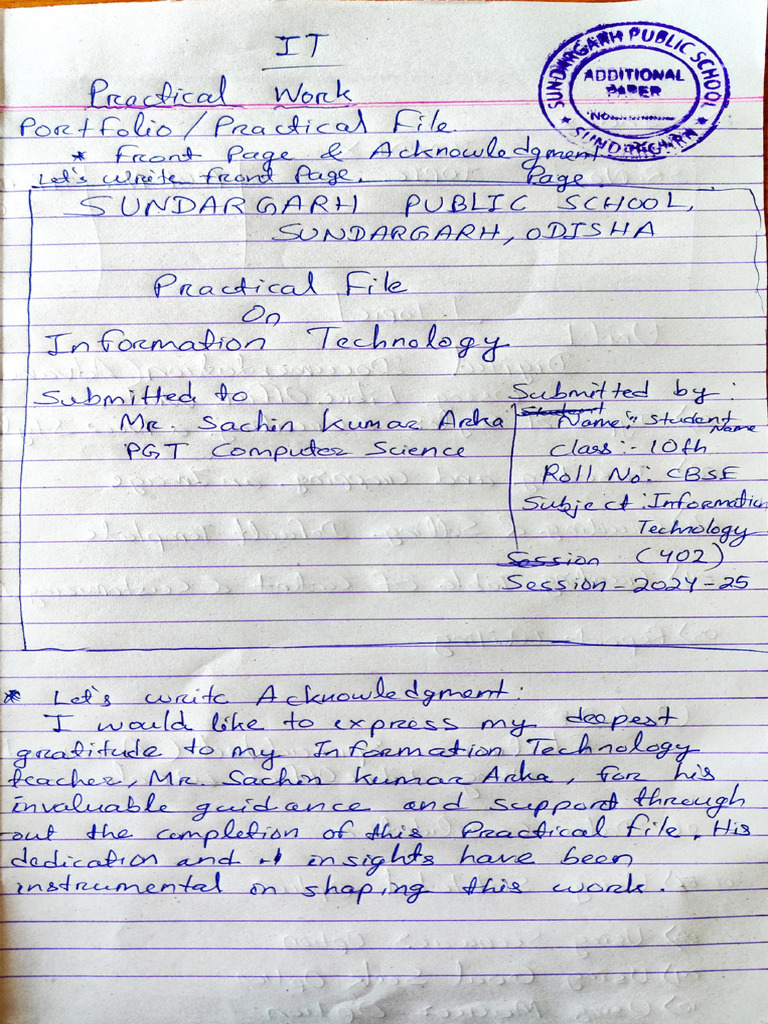 IT
Practical Work
SUNDARGARH PUBLIC SCHOOL
ADDITIONAL
PAPER
No.
★ SUNDARGARH ★
Portfolio/Practical File.
* Front Page & Acknowledgment
Let's write front Page. Page.
SUNDARGARH PUBLIC SCHOOL,
SUNDARGARH, ODISHA
Practical File
On
Information Technology
Submitted to
Mr. Sachin Kumar Arka
PGT Computer Science
Submitted by:
Student
Name:- Student Name
Class:- 10th
Roll No: CBSE
Subject: Information
Technology
Session (402)
Session - 2024-25
* Let's write Acknowledgment:
I would like to express my deepest
gratitude to my Information Technology
teacher, Mr. Sachin Kumar Arka, for his
invaluable guidance and support through
out the completion of this Practical file. His
dedication and insights have been
instrumental in shaping this work.